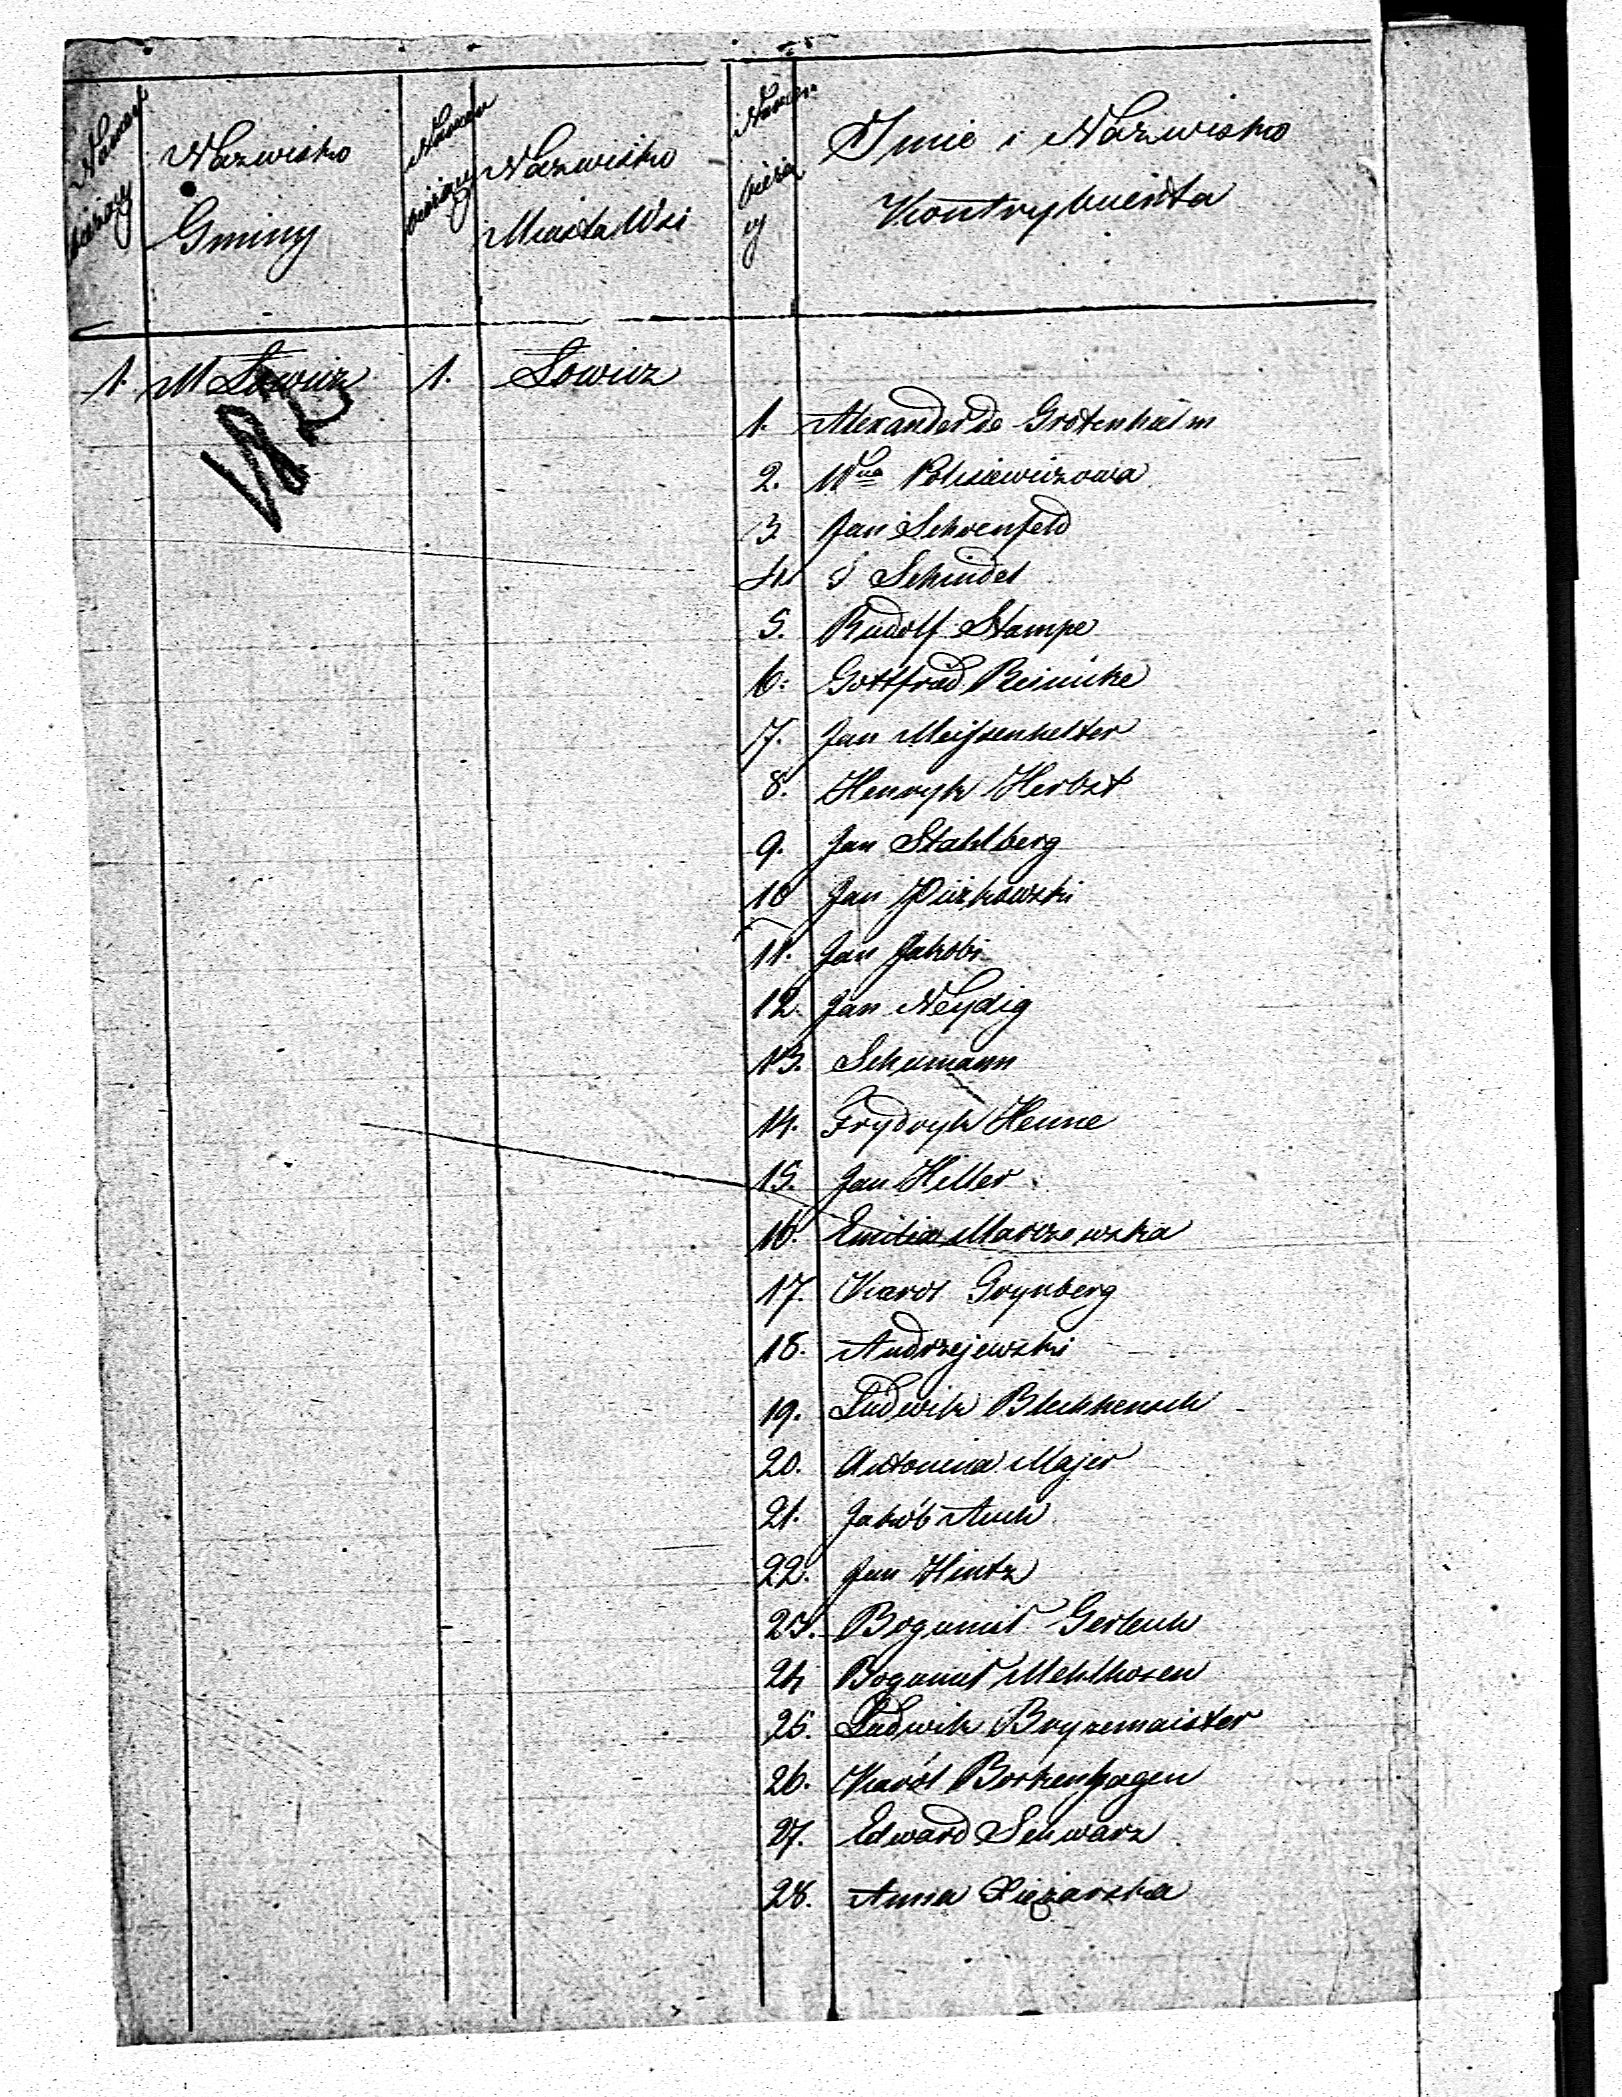 Numer bieżący
Nazwisko Gminy
Numer bieżący
Nazwisko Miasta Wsi
Numer bieżący
Imie i Nazwisko Kontrybuenta
1. M Łowicz 1. Łowicz
1. Alexander de Grotenhielm
2. Wna
3. Jan Schoenfeld
4. S Schindel
5. Rudolf Stampe
6. Gottfrid Reinicke
7. Jan
8. Henryk Herbst
9. Jan Stahlberg
10 Jan Piurkowski
11. Jan Jakobi
12. Jan Neydig
13. Schumann
14. Frydryk Henne
15. Jan Hiller
16. Emilia Marczewska
17. Karol Grynberg
18. Andrzejewski
19. Ludwik
20. Antonina Majer
21. Jakób Auch
22. Jan Hintz
23. Bogumił Gerlach
24 Bogumił Mehlhosen
25. Ludwik Bryzemaister
26. Karól Borkenhagen
27. Edward Schwarz
28. Anna